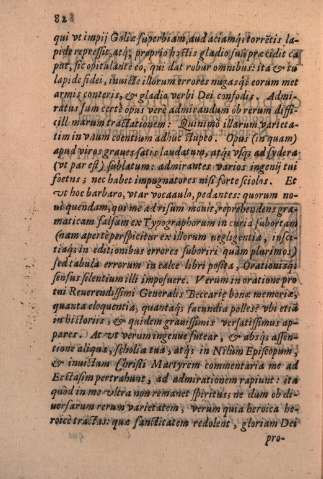 82
qui vt impij Goliæ superbiam, audaciamq; torrẽtis la-
pide repressit, atq; proprio hostis gladio suspræcidit ca
put, sic opitulante eo, qui dat robur omnibus: ita & tu
lapide fidei, inuisos illorum errores nugasq; eorum met
armis conteris, & gladio verbi Dei confodis. Admi-
ratus sum certè opus verè admirandum ob rerum diffi-
cillimarum tractationem. Quinimò illarum varieta-
tim in vnum coëntium adhuc stupeo. Opus (in quam)
apud viros graues satis laudatum, atq; vsq; ad sydera
(vt par est) sublatum: admirantes varios ingenij tui
foetus: nec habet impugnatores nisi forte sciolos. Et
vt hoc barbaro, vtar vocaaulo, pedantes: quorum no-
ui quendam, qui me ad risum mouit, reprehendens gra-
maticam falsam ex Typographorum in curia subortam
(nam apertè perspicitur ex illorum negligentia, insci-
tiaq; in editionibus errores suboriri quàm plurimos)
sed tabula errorum in calce libri posita, Orationisq;
sensus silentium illi imposuere. Verùm in oratione pro
tui Reuerendissimi Generalis Beccariæ bonæ memoriæ,
quanta eloquentia, quantaq; facundia polles? vbi etiā
in historiis, & quidem grauissimis versatissimus ap-
pares. At vt verum ingenuè fatear, & absq; assen-
tatione aliqua, scholia tua, atq; in Nilum Episcopum,
& inuictum Christi Martyrem commentaria me ad
Ecstasim pertrahunt, ad admirationem rapiunt: ita
quòd in me vltra non remanet spiritus, ne dum ob di-
uersarum rerum varietatem, verùm quia heroica he-
roicè tractas: quæ sanctitatem redolent, gloriam Dei
pro-